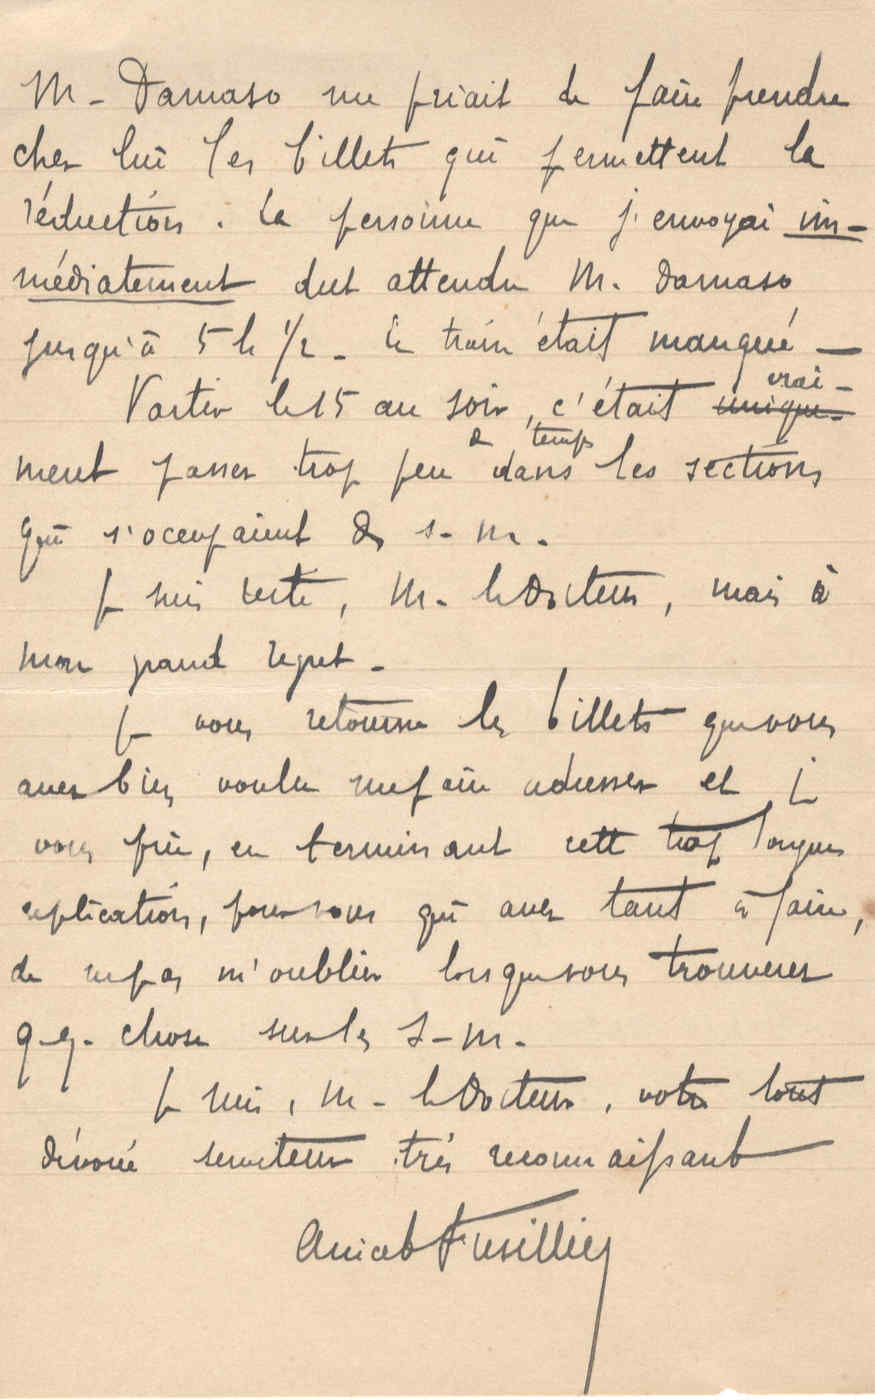 M - Damaso me priait de faire prendre
chez lui les billets qui permettent la
réduction. La personne que j'envoyai im-
médiatement dut attendre M. Damaso
jusqu'à 5 h 1/2 - le train était manqué -
Partir le 15 au soir, c'était unique- vrai-
ment passer trop peu de temps dans les sections
qui s'occupaient des s - m.
Je suis resté, M. le Docteur, mais à
mon grand regret -
Je vous retourne les billets que vous
avez bien voulu me faire adresser et je
vous prie, en terminant cette trop longue
explication, pour vous qui avez tant à faire,
de ne pas m'oublier lorsque vous trouverez
q-q- chose sur les S - m.
Je suis, M - le Docteur, votre tout
dévoué serviteur très reconnaissant
Anicet Fusillier